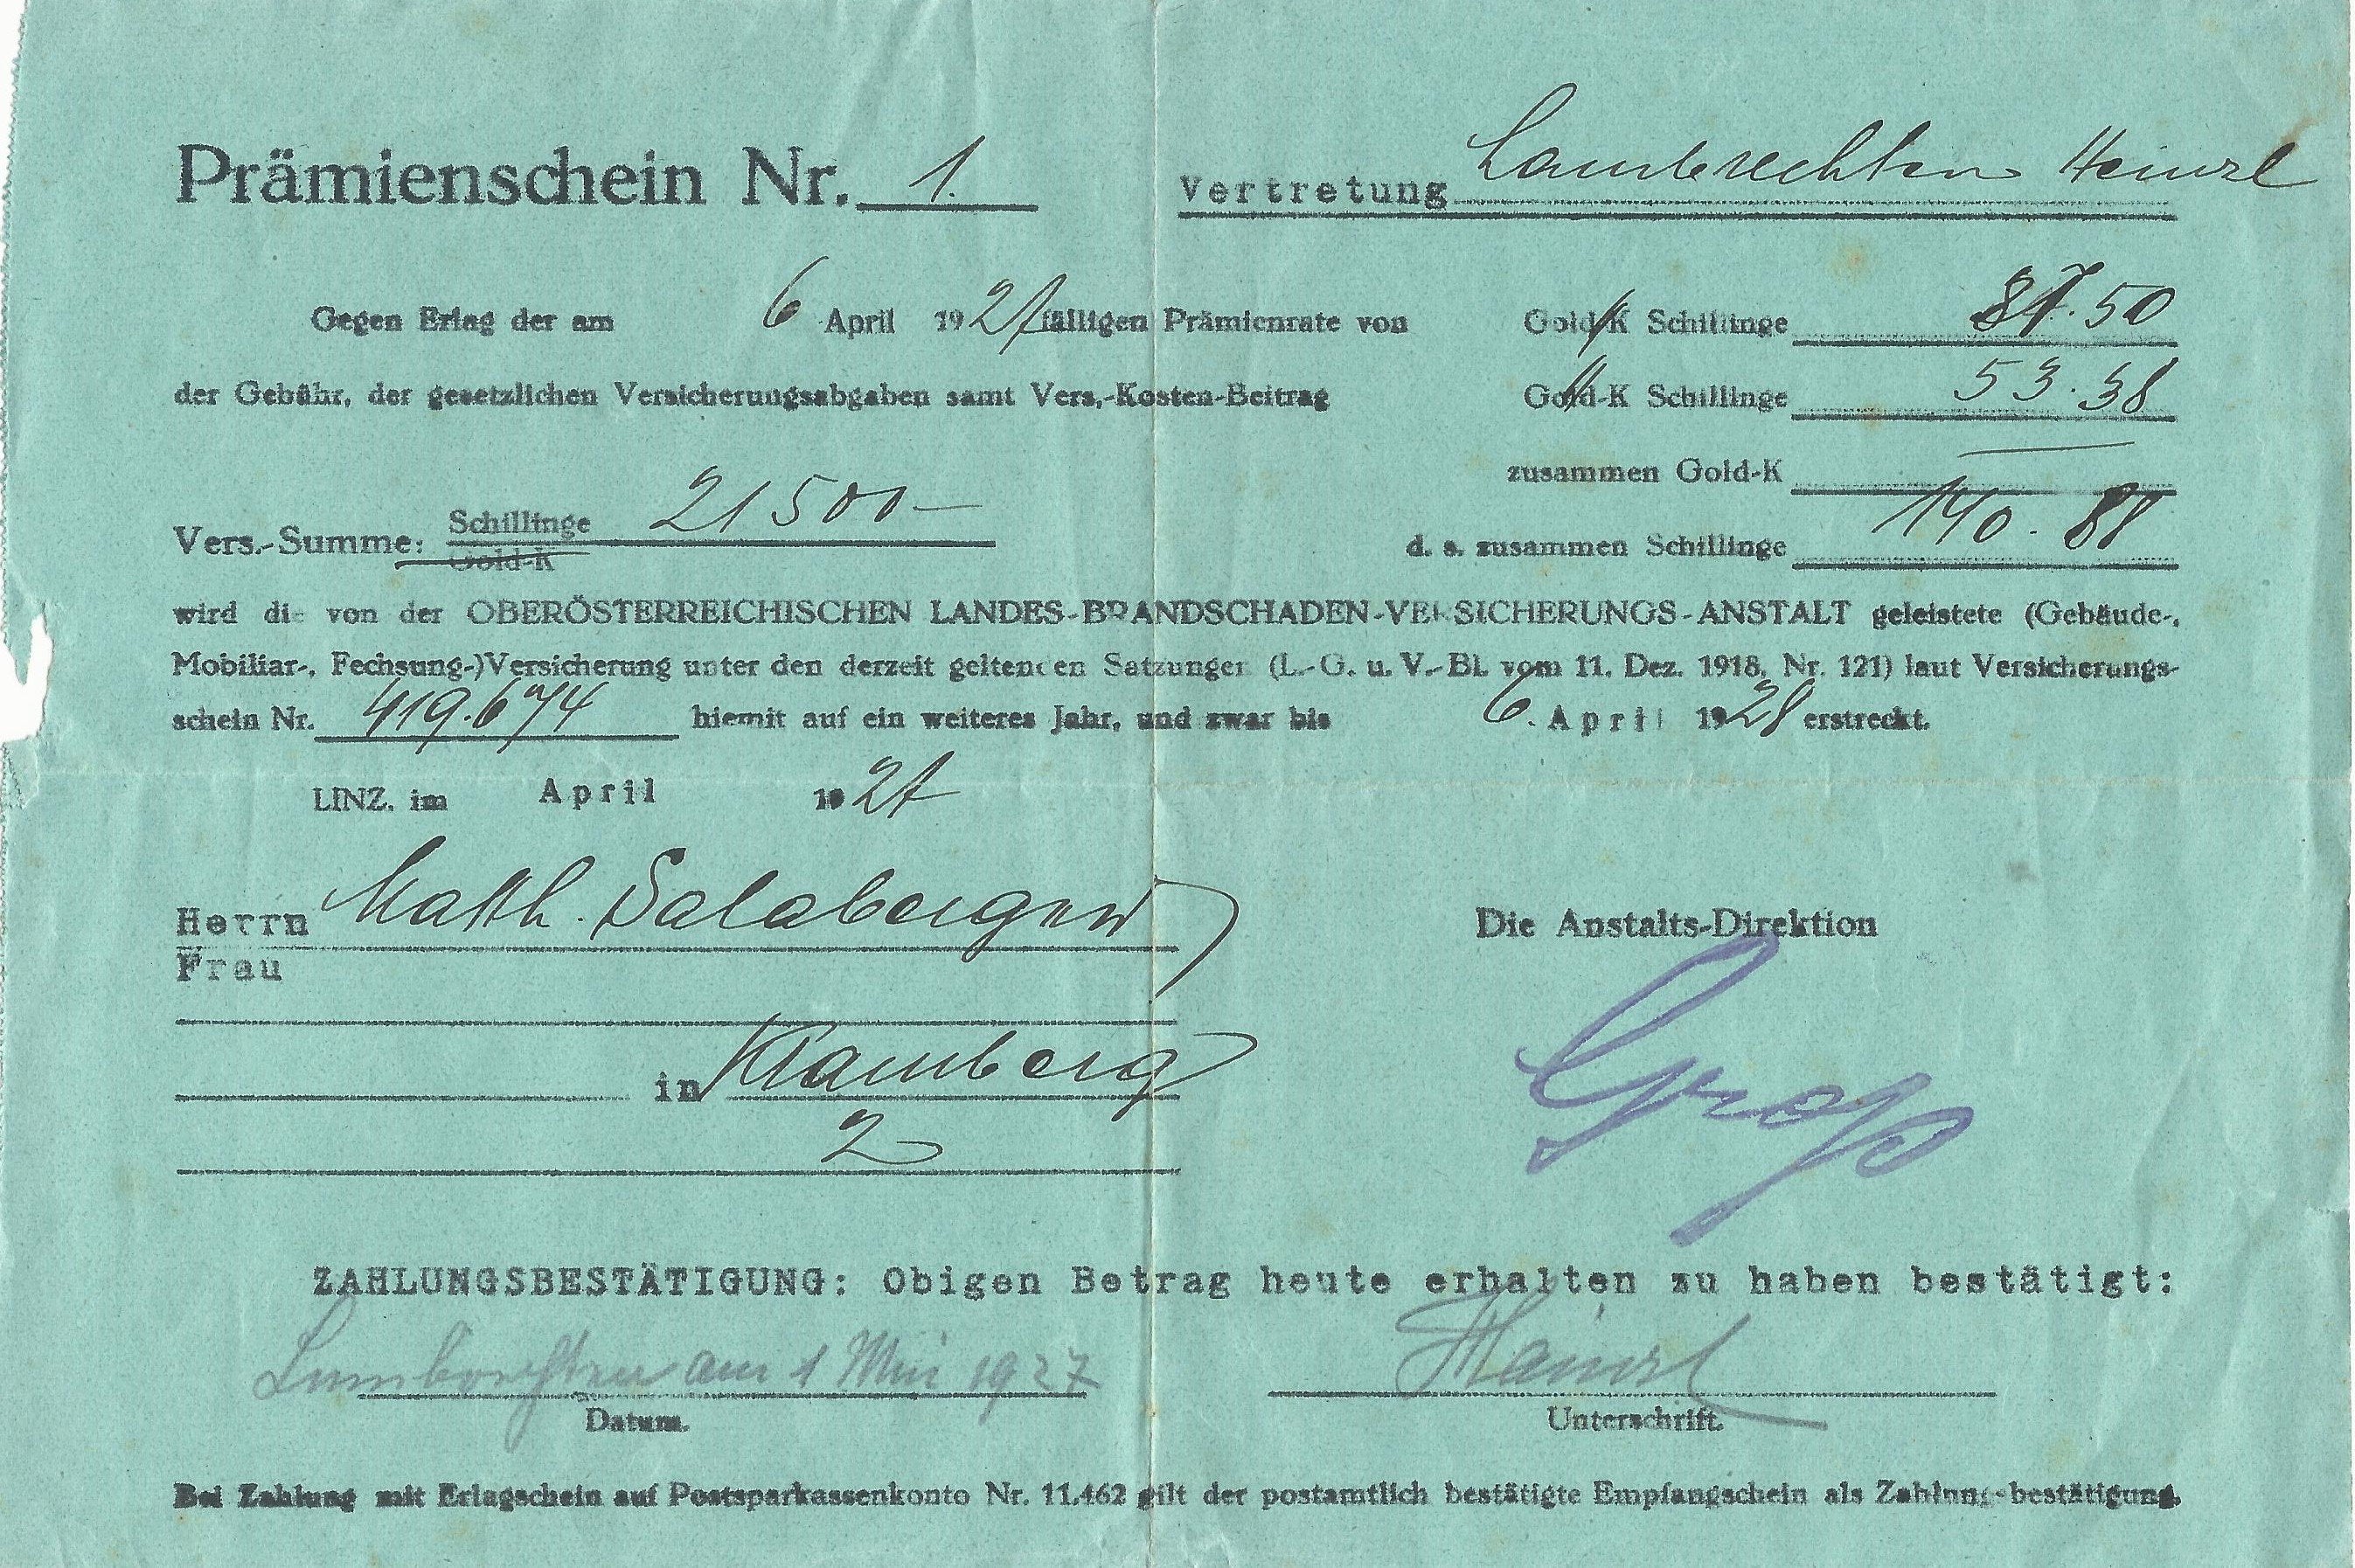 Prämienschein Nr. 1.
Vertretung Lambrechten Heinzl
Gegen Erlag der am 6 April 1927 fälligen Prämienrate von Gold-K Schillinge 87.50
der Gebühr, der gesetzlichen Versicherungsabgaben samt Vers.-Kosten-Beitrag Gold-K Schillinge 53.38
zusammen Gold-K
Vers.-Summe: Schillinge 21500–
Gold-K
d. s. zusammen Schillinge 140.88
wird die von der OBERÖSTERREICHISCHEN LANDES-BRANDSCHADEN-VERSICHERUNGS-ANSTALT geleistete (Gebäude-,
Mobiliar-, Fechsung-)Versicherung unter den derzeit geltenden Satzungen (L.-G. u. V.-Bl. vom 11. Dez. 1918, Nr. 121) laut Versicherungs-
schein Nr. 419.674 hiemit auf ein weiteres Jahr, und zwar bis 6. April 1928 erstreckt.
LINZ, im April 1927
Herrn Math. Salaberger
Frau
Die Anstalts-Direktion
in Kramberg
Groß
2
ZAHLUNGSBESTÄTIGUNG: Obigen Betrag heute erhalten zu haben bestätigt:
Lambrechten am 1 Mai 1927 Hainzl
Datum. Unterschrift.
Bei Zahlung mit Erlagschein auf Postsparkassenkonto Nr. 11.462 gilt der postamtlich bestätigte Empfangschein als Zahlungsbestätigung.